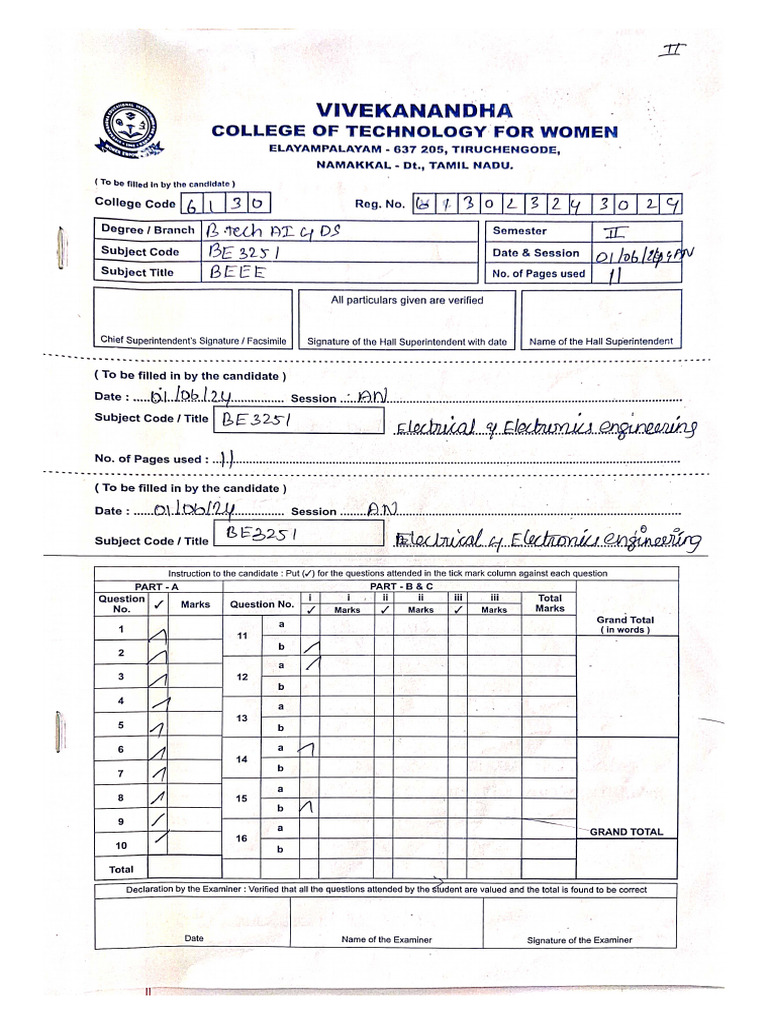 II
VIVEKANANDHA
COLLEGE OF TECHNOLOGY FOR WOMEN
ELAYAMPALAYAM - 637 205, TIRUCHENGODE,
NAMAKKAL - Dt., TAMIL NADU.
( To be filled in by the candidate )
College Code 6 1 3 0 Reg. No. 6 1 3 0 2 3 2 4 3 0 2 9
Degree / Branch B.tech AI & DS Semester II
Subject Code BE 3251 Date & Session 01/06/24 AN
Subject Title BEEE No. of Pages used 11
All particulars given are verified
Chief Superintendent's Signature / Facsimile Signature of the Hall Superintendent with date Name of the Hall Superintendent
( To be filled in by the candidate )
Date : 01/06/24 Session : AN
Subject Code / Title BE3251 Electrical & Electronics engineering
No. of Pages used : 11
( To be filled in by the candidate )
Date : 01/06/24 Session AN
Subject Code / Title BE3251 Electrical & Electronics engineering
Instruction to the candidate : Put (✓) for the questions attended in the tick mark column against each question
PART - A PART - B & C
Question No. ✓ Marks Question No. i ✓ i Marks ii ✓ ii Marks iii ✓ iii Marks Total Marks Grand Total ( in words )
1 ✓ 11 a
2 ✓ b ✓
3 ✓ 12 a ✓
4 ✓ b
5 ✓ 13 a
6 ✓ b
7 ✓ 14 a ✓
8 ✓ b
9 ✓ 15 a
10 ✓ b ✓
16 a GRAND TOTAL
b
Total
Declaration by the Examiner : Verified that all the questions attended by the student are valued and the total is found to be correct
Date Name of the Examiner Signature of the Examiner